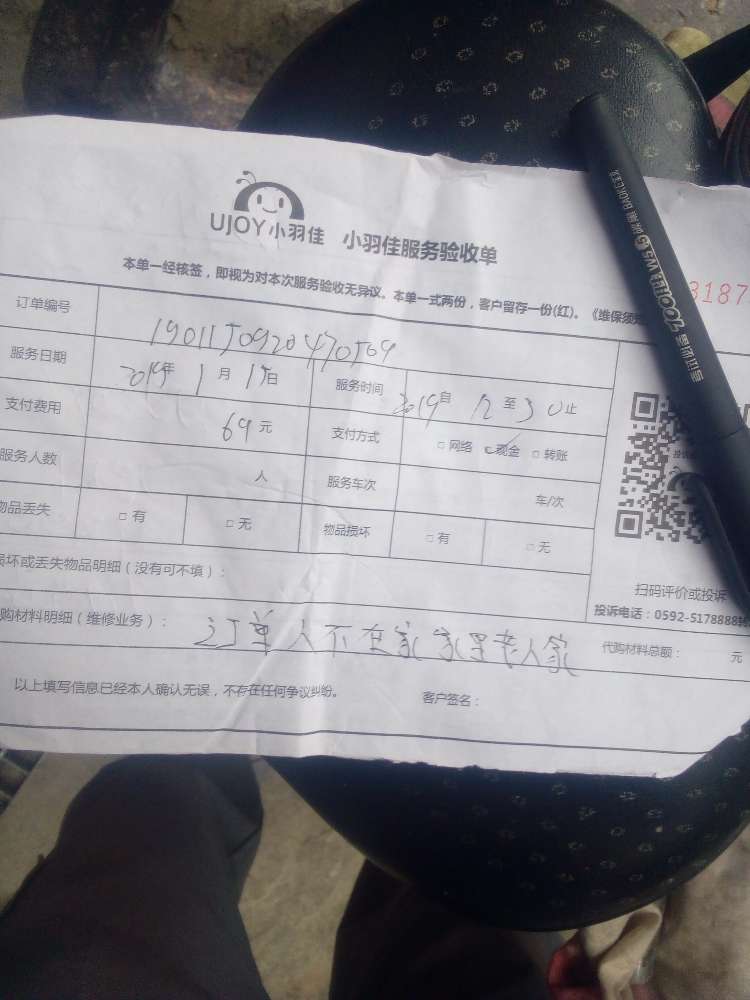 UJOY小羽佳 小羽佳服务验收单
本单一经核签，即视为对本次服务验收无异议。本单一式两份，客户留存一份(红)。《维保须知
3187
订单编号 1901150920470509
服务日期 2019年 1月 15日 服务时间 2019自 12至30止
支付费用 69元 支付方式 □网络 现金 □转账
服务人数 人 服务车次 车/次
物品丢失 □有 □无 物品损坏 □有 □无
损坏或丢失物品明细（没有可不填）：
扫码评价或投诉
投诉电话：0592-5178888转
购材料明细（维修业务）： 订单人不在家家里老人家 代购材料总额： 元
以上填写信息已经本人确认无误，不存在任何争议纠纷。 客户签名：
BAOKE宝克